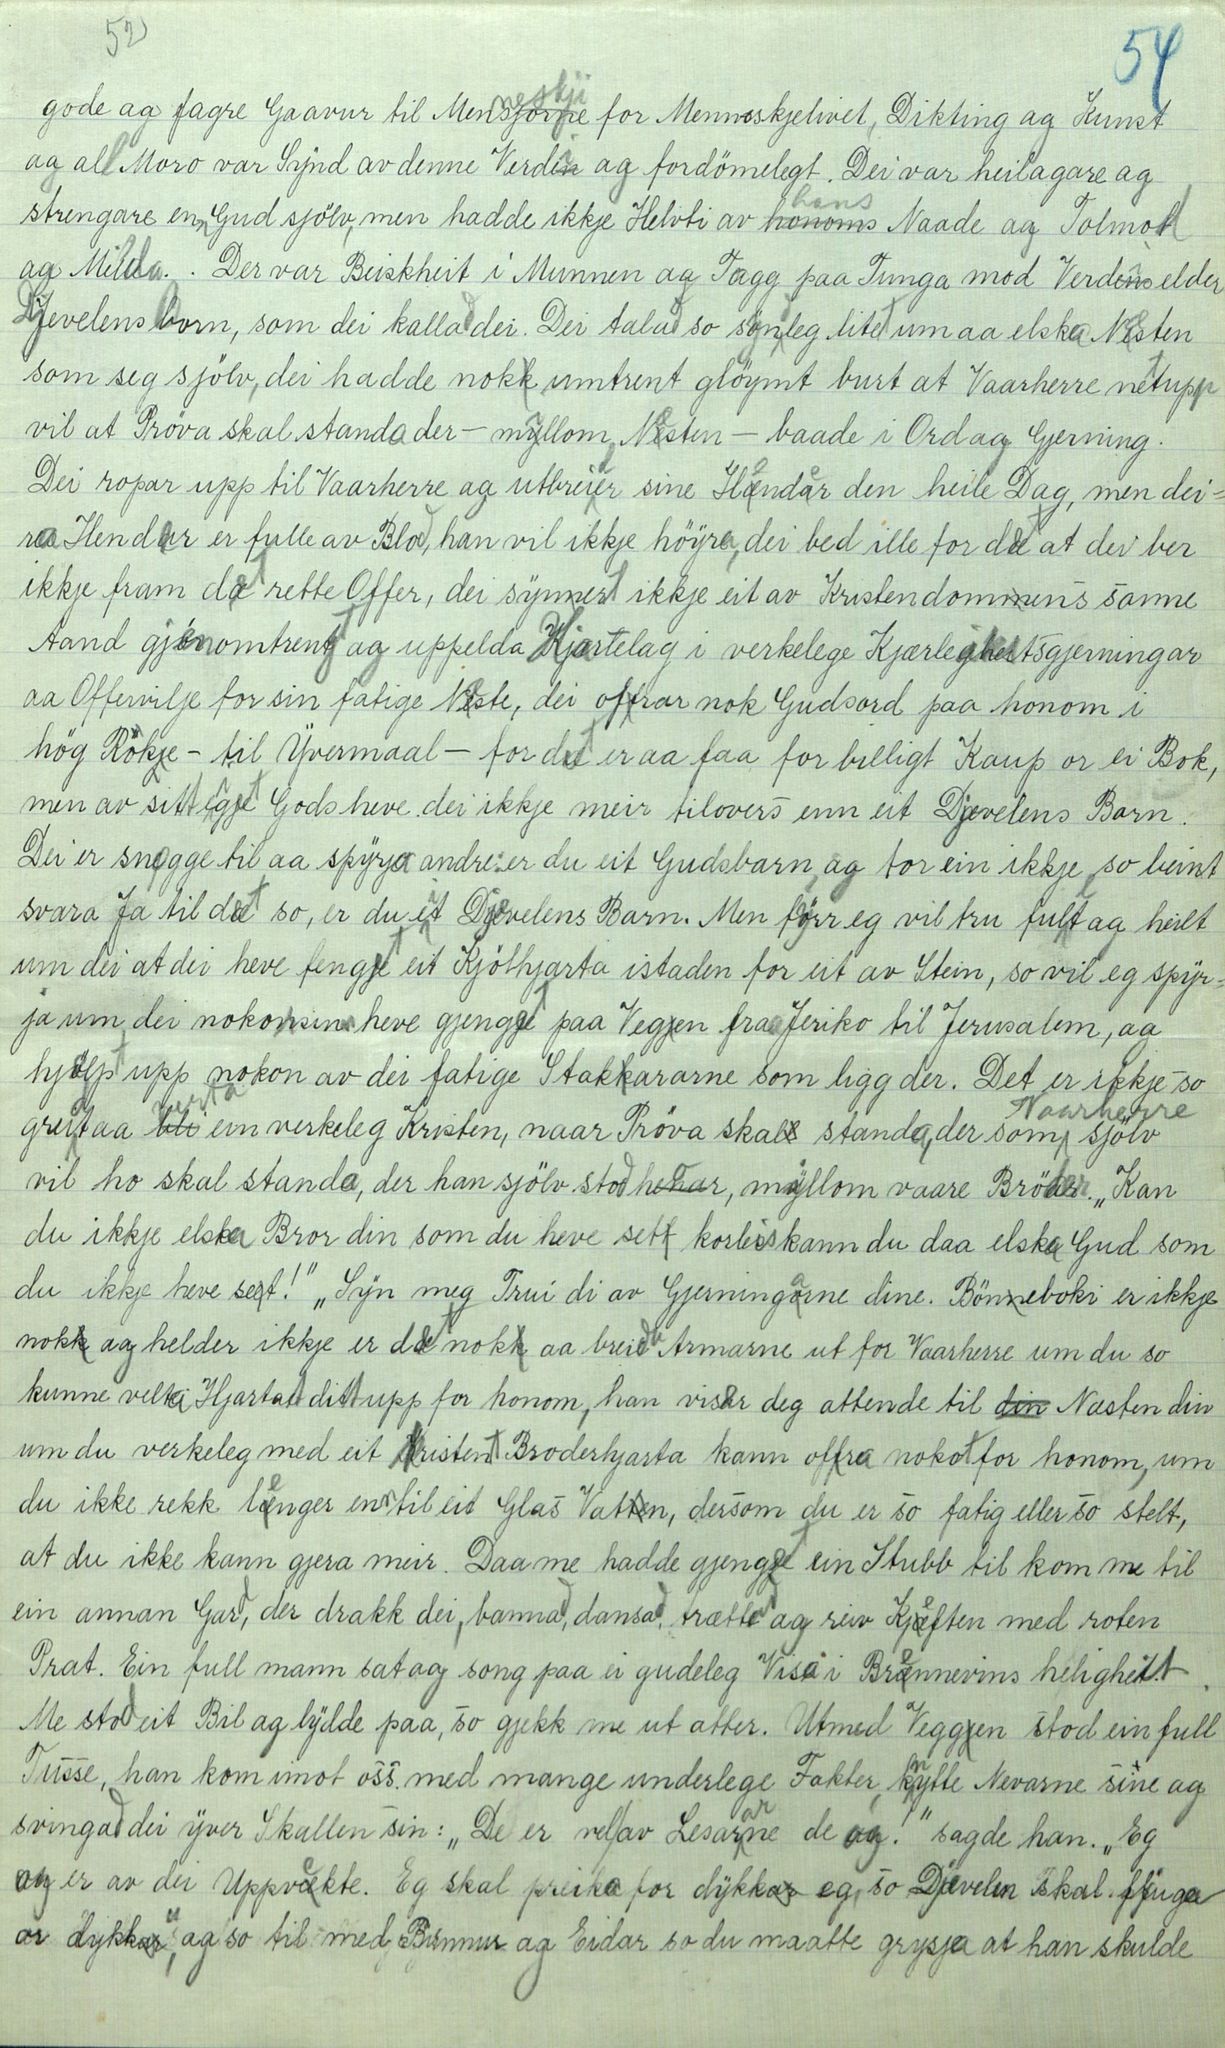 52)
54
gode ag fagre Gaavur til Menneskji for Menneskjelivet, Dikting ag Kunst
ag all Moro var Synd av denne Verdi ag fordömelegt. Dei var heilagare ag
strengare en Gud sjölv, men hadde ikkje Helvti av hans Naade ag Tolmod
ag Milda. Der var Beiskheit i Munnen ag Tagg paa Tunga mod Verdens elder
Djevelens born, som dei kallad dei. Dei talad so synleg litet um aa elska Nesten
som seg sjölv, dei hadde nokk umtrent glöymt burt at Vaarherre netupp
vil at Pröva skal standa der - myllom Nesten - baade i Ord ag Gjerning.
Dei ropar upp til Vaarherre ag utbreier sine Hender den heile Dag, men dei=
ra Hendar er fulle av Blod, han vil ikkje höyra, dei bed ille for det at dei ber
ikkje fram det rette Offer, dei synest ikkje eit av Kristendommens sanne
Aand gjenomtrengt ag uppelda Hjartelag i verkelege Kjærleghetsgjerningar
aa Offervilje for sin fatige Neste, dei offrar nok Gudsord paa honom i
hög Rökje - til Yvermaal - for det er aa faa for billigt Kaup or ei Bok,
men av sitt eget Gods heve dei ikkje meir tilovers enn eit Djevelens Barn.
Dei er snøgge til aa spyrja andre: er du eit Gudsbarn, ag tor ein ikkje so beint
svara Ja til det so, er du eit Djevelens Barn. Men fyrr eg vil tru fullt ag heilt
um dei at dei heve fenget eit Kjöthjarta istaden for eit av Stein, so vil eg spyr=
ja um dei nokonsin heve gjenget paa Vegjen fraa Jeriko til Jerusalem, ag
hjelpt upp nokon av dei fatige Stakkararne som ligg der. Det er ikkje so
greidt aa verta ein verkeleg Kristen, naar Pröva skal standa, der som Vaarherre sjölv
vil ho skal standa, der han sjölv stod, myllom vaare Bröder. „Kan
du ikkje elska Bror din som du heve sett korleis kann du daa elska Gud som
du ikkje heve sett!" „Syn meg Trui di av Gjerningarne dine. Bönneboki er ikkje
nokk ag helder ikkje er det nokk aa breida Armarne ut for Vaarherre um du so
kunne velta Hjartat ditt upp for honom, han viser deg attende til Næsten din
um du verkeleg med eit kristent Broderhjarta kann offra nokot for honom, um
du ikke rekk lenger en til eit Glas Vatten, dersom du er so fatig eller so stelt,
at du ikke kann gjera meir. Daa me hadde gjenget ein Stubb til kom me til
ein annan Gard, der drakk dei, bannad, dansad, trættad ag reiv Kjeften med roten
Prat. Ein full mann sat ag song paa ei gudeleg Visa i Brennevins helighett.
Me stod eit Bil ag lydde paa, so gjekk me ut atter. Utmed Veggjen stod ein full
Tusse, han kom imot oss med mange underlege Fakter, knytte Nevarne sine ag
svingad dei yver Skallen sin: „De er vel av Lesarane de ag!" sagde han. „Eg
ag er av dei Uppvekte. Eg skal preika for dykk eg, so Djevelen skal fjuga
or dykk", ag so til med Bannur ag Eidar so du maatte grysja at han skulde